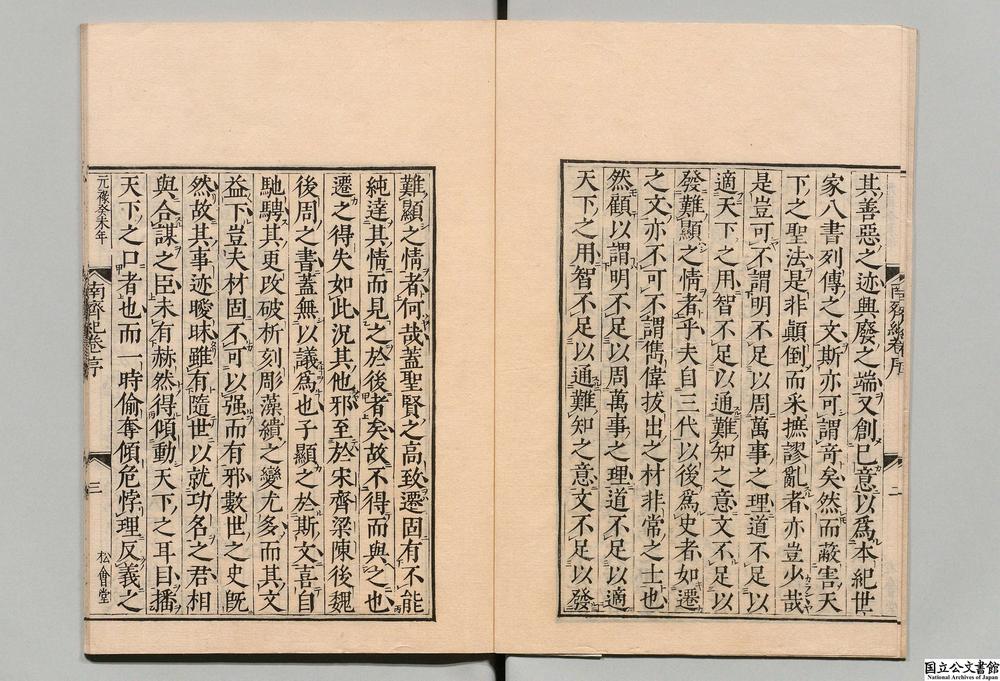 其善惡之迹興廢之端又創已意以爲本紀世
家八書列傳之文斯亦可謂竒矣然而蔽害天
下之聖法是非顛倒而采摭謬亂者亦豈少哉
是豈可不謂明不足以周萬事之理道不足以
適天下之用智不足以通難知之意文不足以
發難顯之情者乎夫自三代以後爲史者如遷
之文亦不可不謂雋偉拔出之材非常之士也
然顧以謂明不足以周萬事之理道不足以適
天下之用智不足以通難知之意文不足以發
南齊紀卷序
二
難顯之情者何哉蓋聖賢之高致遷固有不能
純達其情而見之於後者矣故不得而與之也
遷之得失如此況其他邪至於宋齊梁陳後魏
後周之書蓋無以議爲也子顯之於斯文喜自
馳騁其更改破析刻彫藻繢之變尤多而其文
益下豈夫材固不可以强而有邪數世之史旣
然故其事迹曖昧雖有隨世以就功名之君相
與合謀之臣未有赫然得傾動天下之耳目播
天下之口者也而一時偷奪傾危悖理反義之
元祿癸未年
南齊紀卷序
三
松會堂
国立公文書館
National Archives of Japan